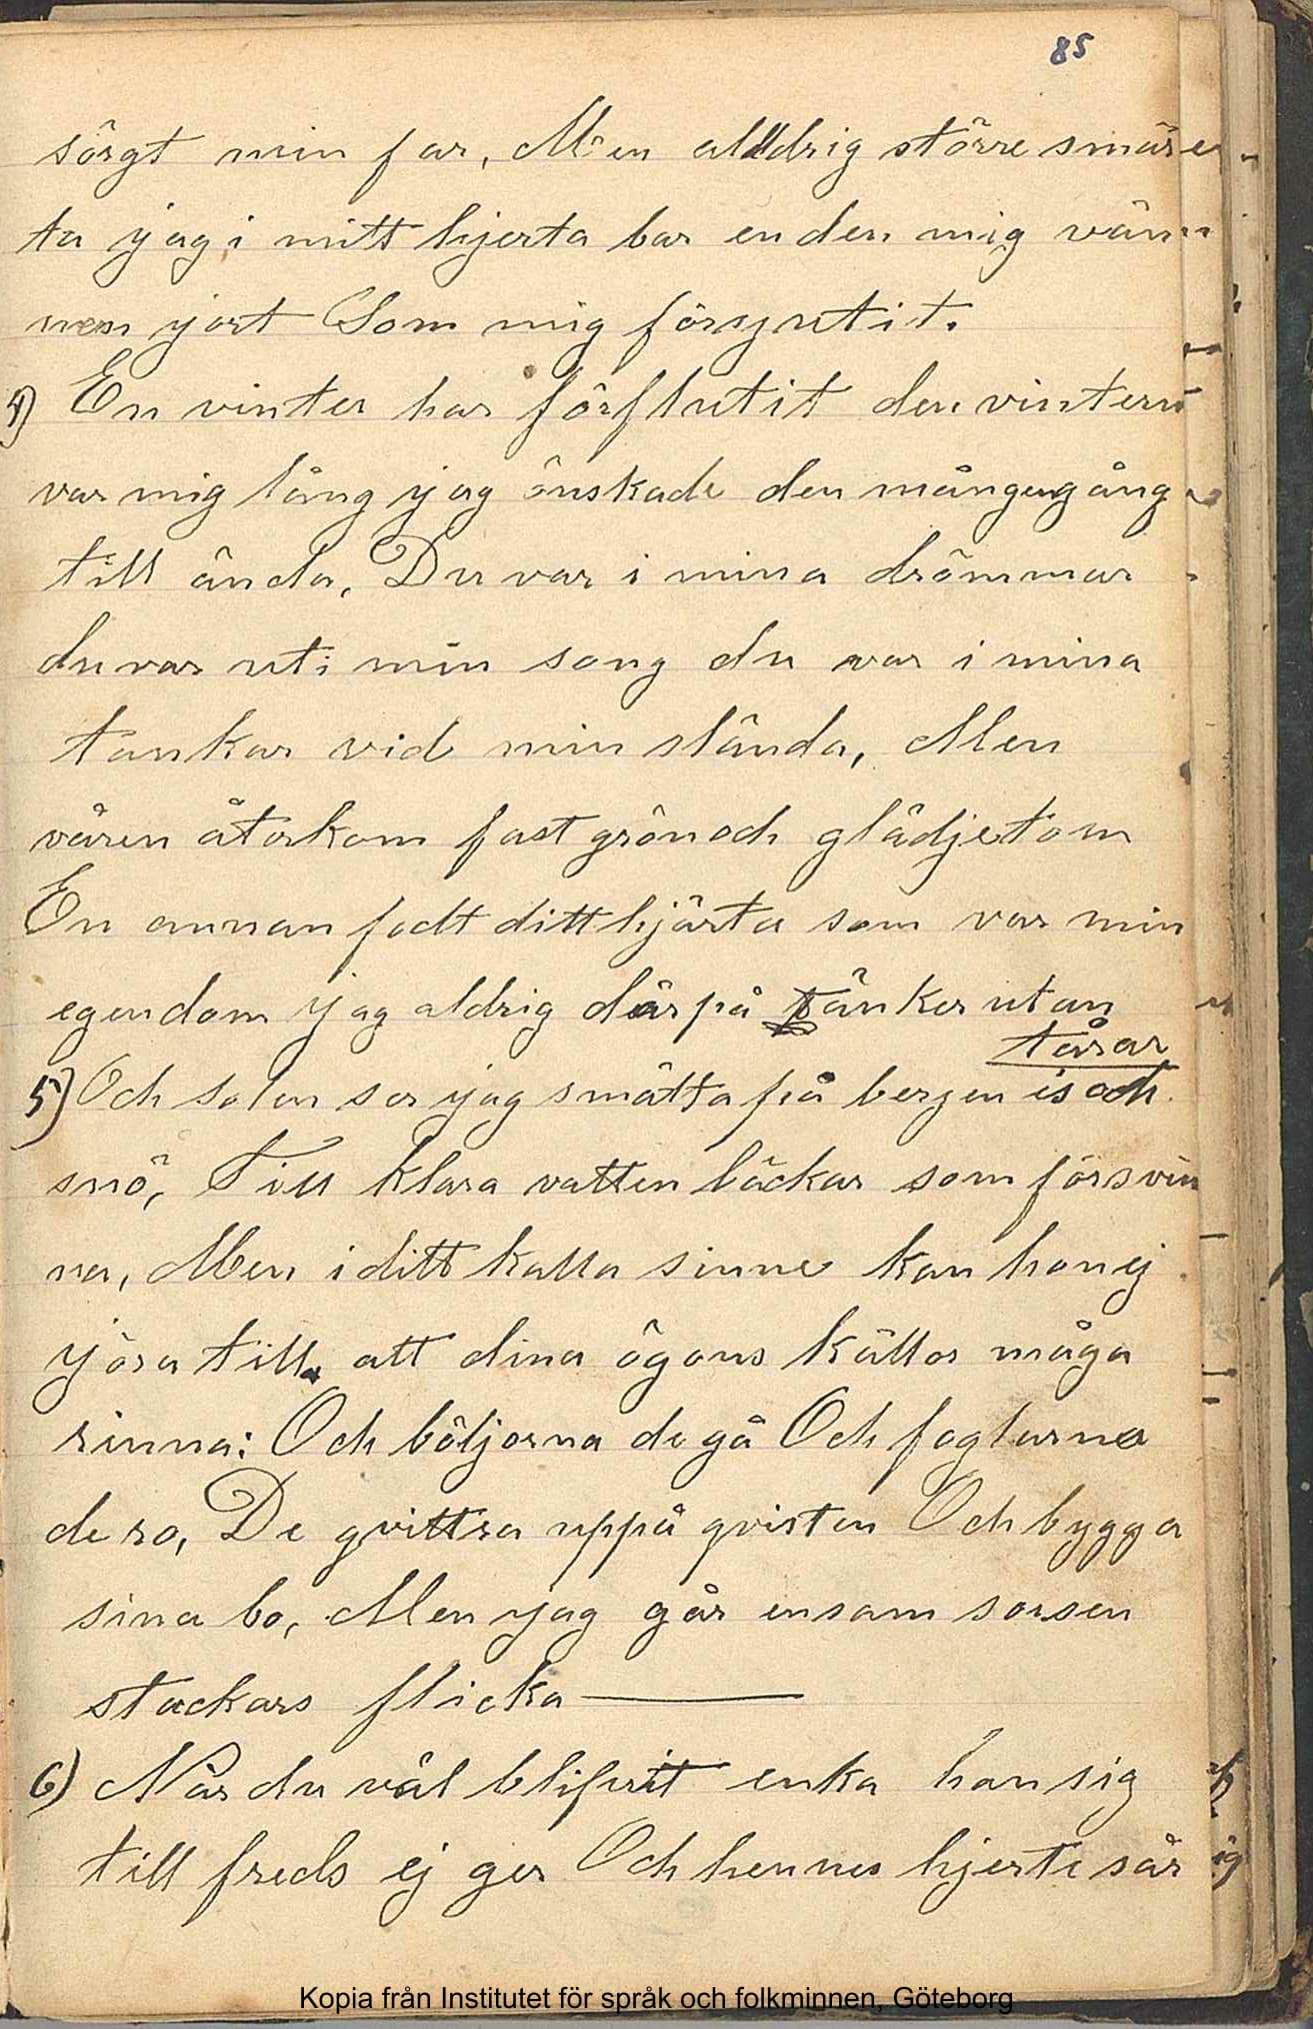 85
sörgt min far, Men alldrig större smär
ta jag i mitt hjerta bar en den mig vän
nen jort Som mig förgutit.
4) En vinter har förflutit den vintern
var mig lång jag önskade den mången gång
till ända, Du var i mina drömmar
du var uti min sång du var i mina
tankar vid min slända, Men
våren återkom fast grön och glädjetom
En annan fådt ditt hjärta som var min
egendom jag aldrig därpå tänker utan
tårar
5) Och solen ser jag smälta på bergen is och
snö, Till klara vatten bäckar som försvin
na, Men i ditt kalla sinne kan hon ej
jöra till att dina ögons källor måga
rinna: Och böljorna de gå Och foglarna
de ro, De qvittra uppå qvisten Och bygga
sina bo, Men jag går ensam sorsen
stackars flicka
6) När du väl blifvit enka han sig
till freds ej ger Och hennes hjerte sår
Kopia från Institutet för språk och folkminnen, Göteborg